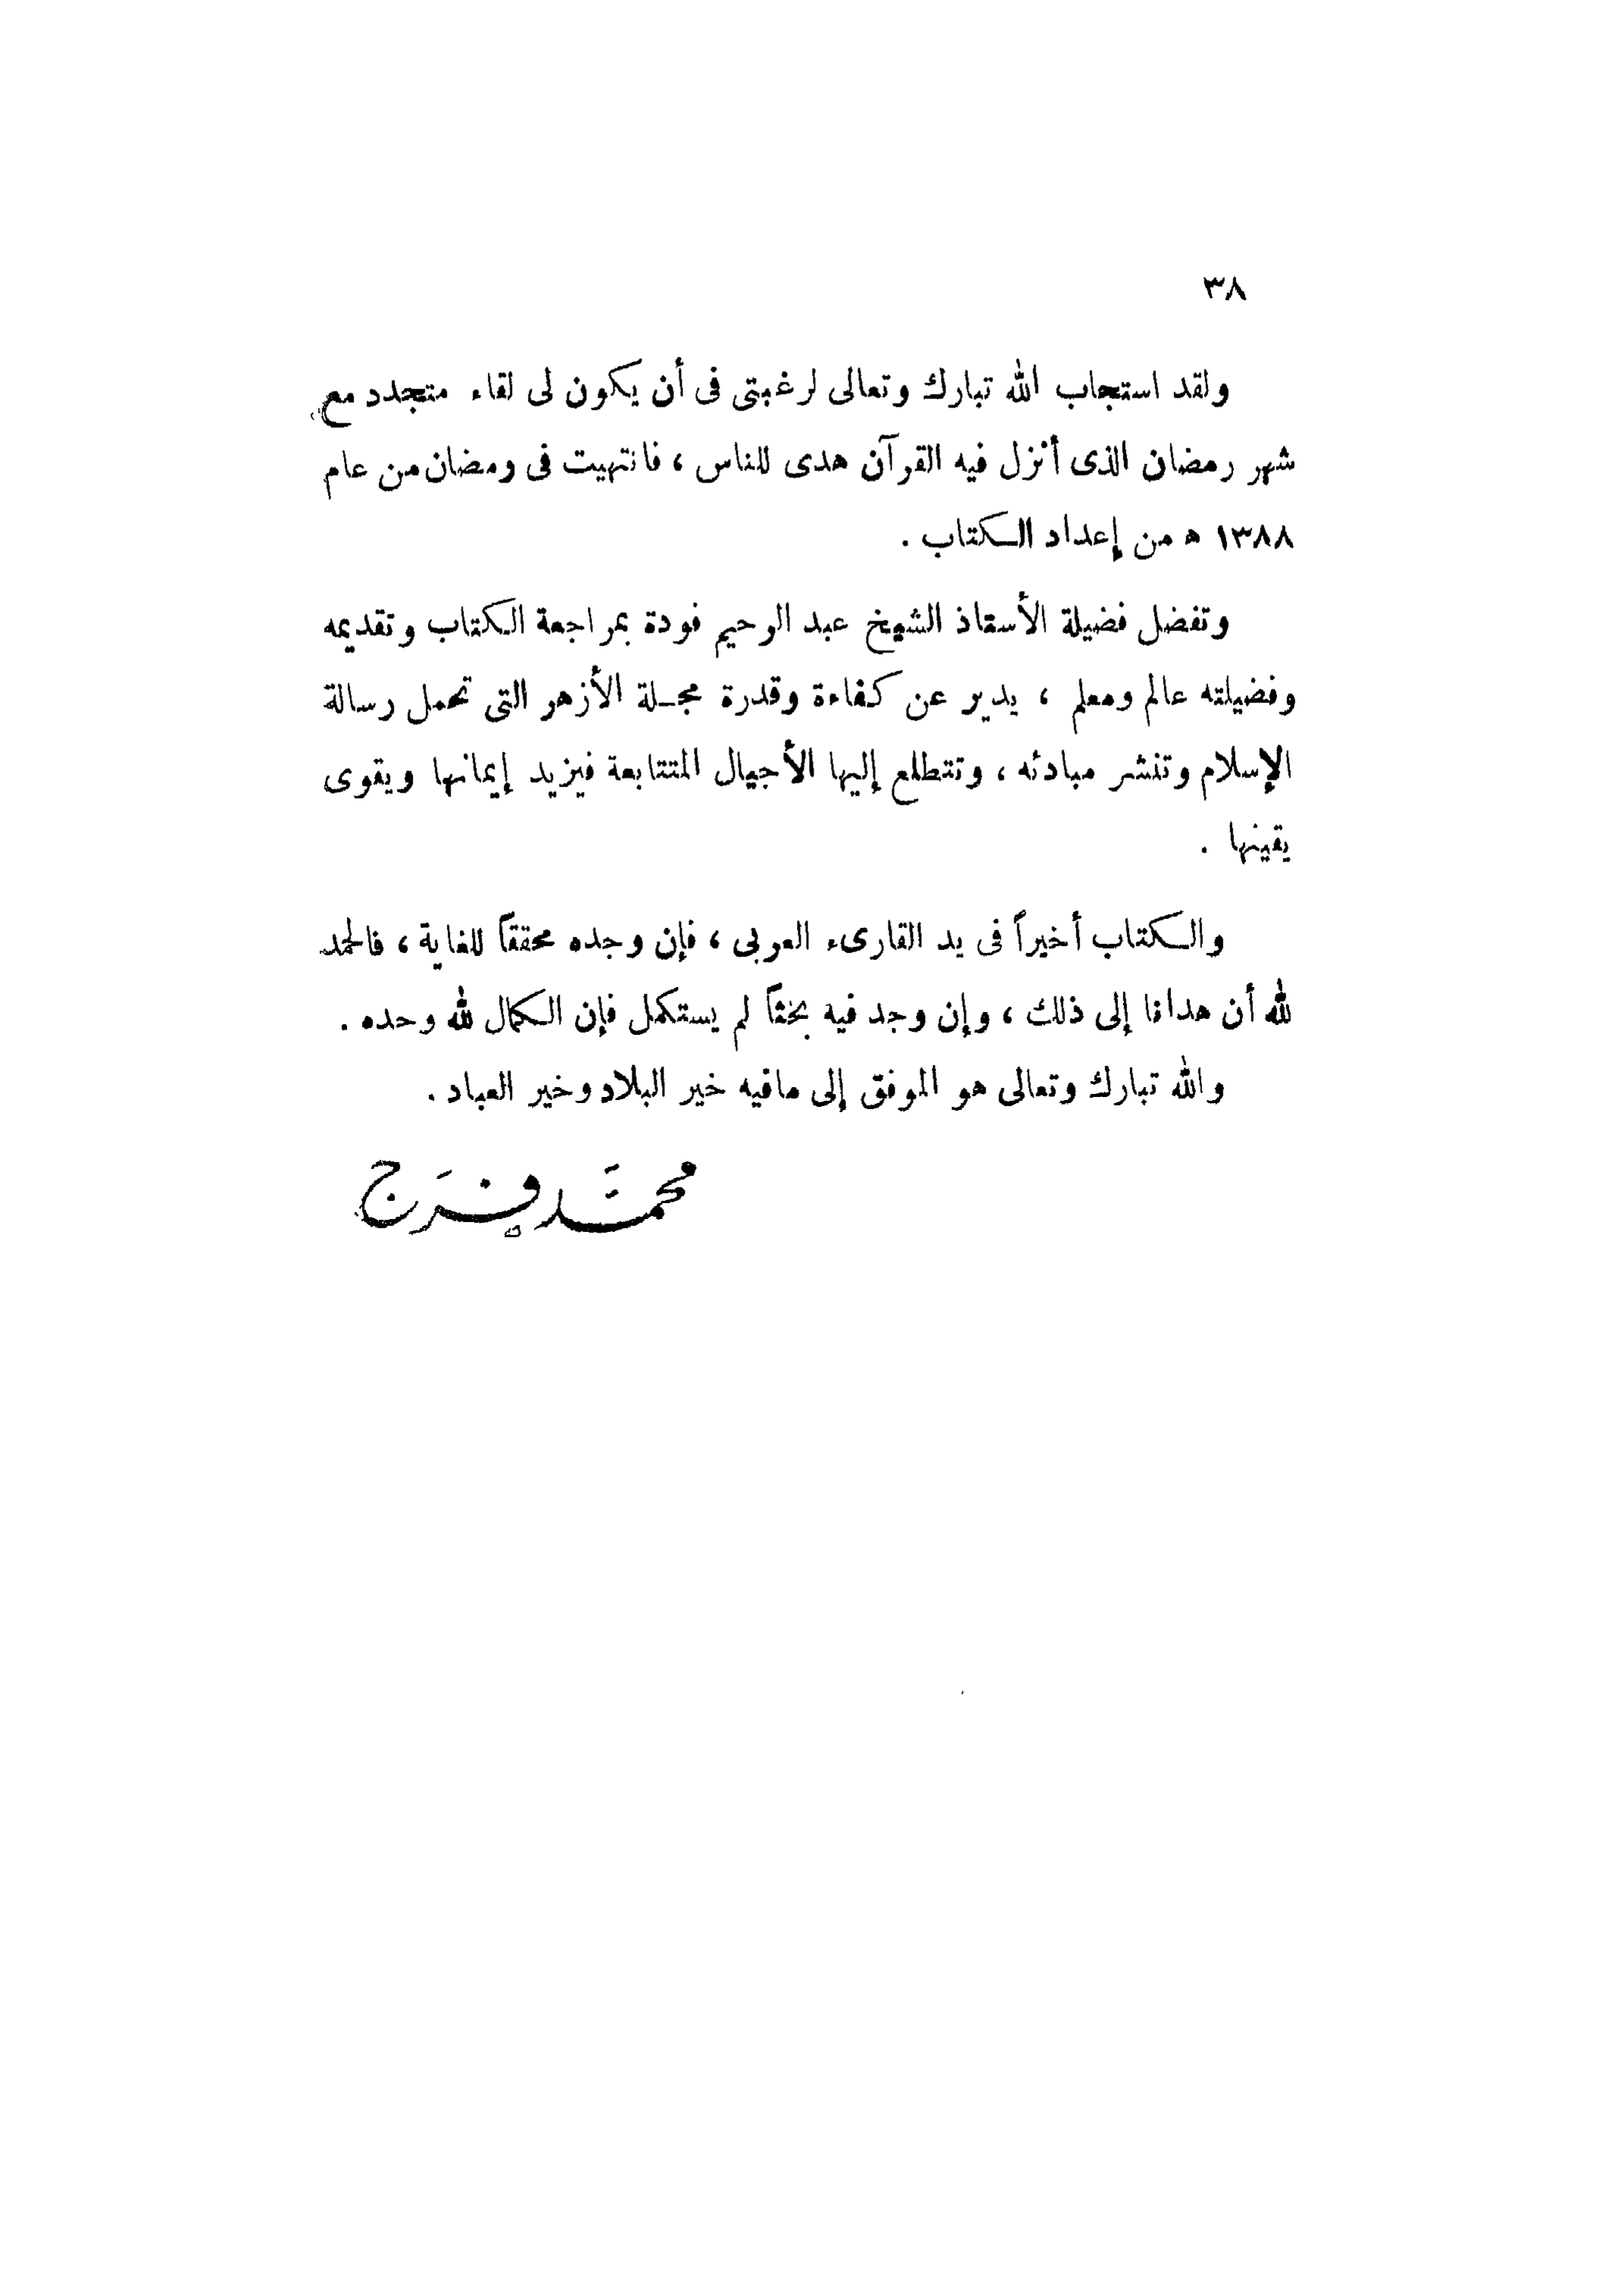 ٣٨
ولقد استجاب الله تبارك وتعالى لرغبتى فى أن يكون لى لقاء متجدد مع
شهر رمضان الذى أنزل فيه القرآن هدى للناس ، فانتهيت فى رمضان من عام
١٣٨٨ ه من إعداد الكتاب .
وتفضل فضيلة الأستاذ الشيخ عبد الرحيم فودة بمراجعة الكتاب وتقديمه
وفضيلته عالم ومعلم ، يدير عن كفاءة وقدرة مجلة الأزهر التى تحمل رسالة
الإسلام وتنشر مبادئه ، وتتطلع إليها الأجيال المتتابعة فيزيد إيمانها ويقوى
يقينها .
والكتاب أخيراً فى يد القارىء العربى ، فإن وجده محققاً للغاية ، فالحمد
لله أن هدانا إلى ذلك ، وإن وجد فيه بحثاً لم يستكمل فإن الكمال لله وحده .
والله تبارك وتعالى هو الموفق إلى مافيه خير البلاد وخير العباد .
محمَّد فرَج